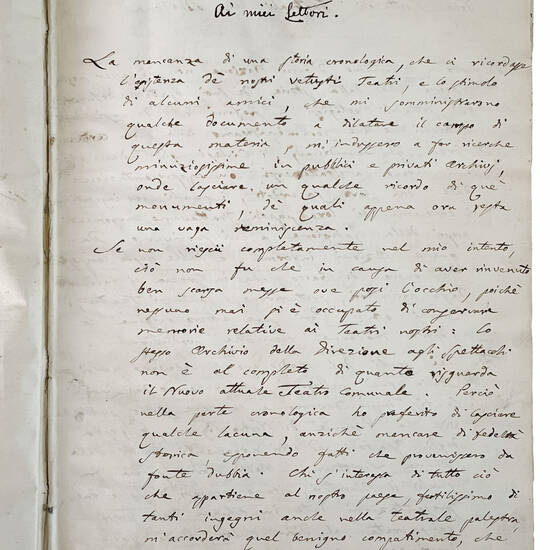 Ai miei Lettori.
La mancanza di una storia cronologica, che ci ricordasse
l'esistenza de' nostri vetusti Teatri, e lo stimolo
di alcuni amici, che mi somministrarono
qualche documento a dilatare il campo di
questa materia, m'indussero a far ricerche
minuziosissime in pubblici e privati Archivj,
onde lasciare un qualche ricordo di que'
monumenti, de' quali appena ora resta
una vaga reminiscenza.
Se non riescii completamente nel mio intento,
ciò non fu che in causa di aver rinvenuto
ben scarsa messe ove posi l'occhio, poichè
nessuno mai si è occupato di conservare
memorie relative ai Teatri nostri: lo
stesso Archivio della Direzione agli Spettacoli
non è al completo di quanto risguarda
il Nuovo attuale Teatro Comunale. Perciò
nella parte cronologica ho preferito di lasciare
qualche lacuna, anzichè mancare di fedeltà
storica, esponendo fatti che provenissero da
fonte dubbia. Chi s'interessa di tutto ciò
che appartiene al nostro paese, fertilissimo di
tanti ingegni anche nella teatrale palestra
m'accorderà quel benigno compatimento, che